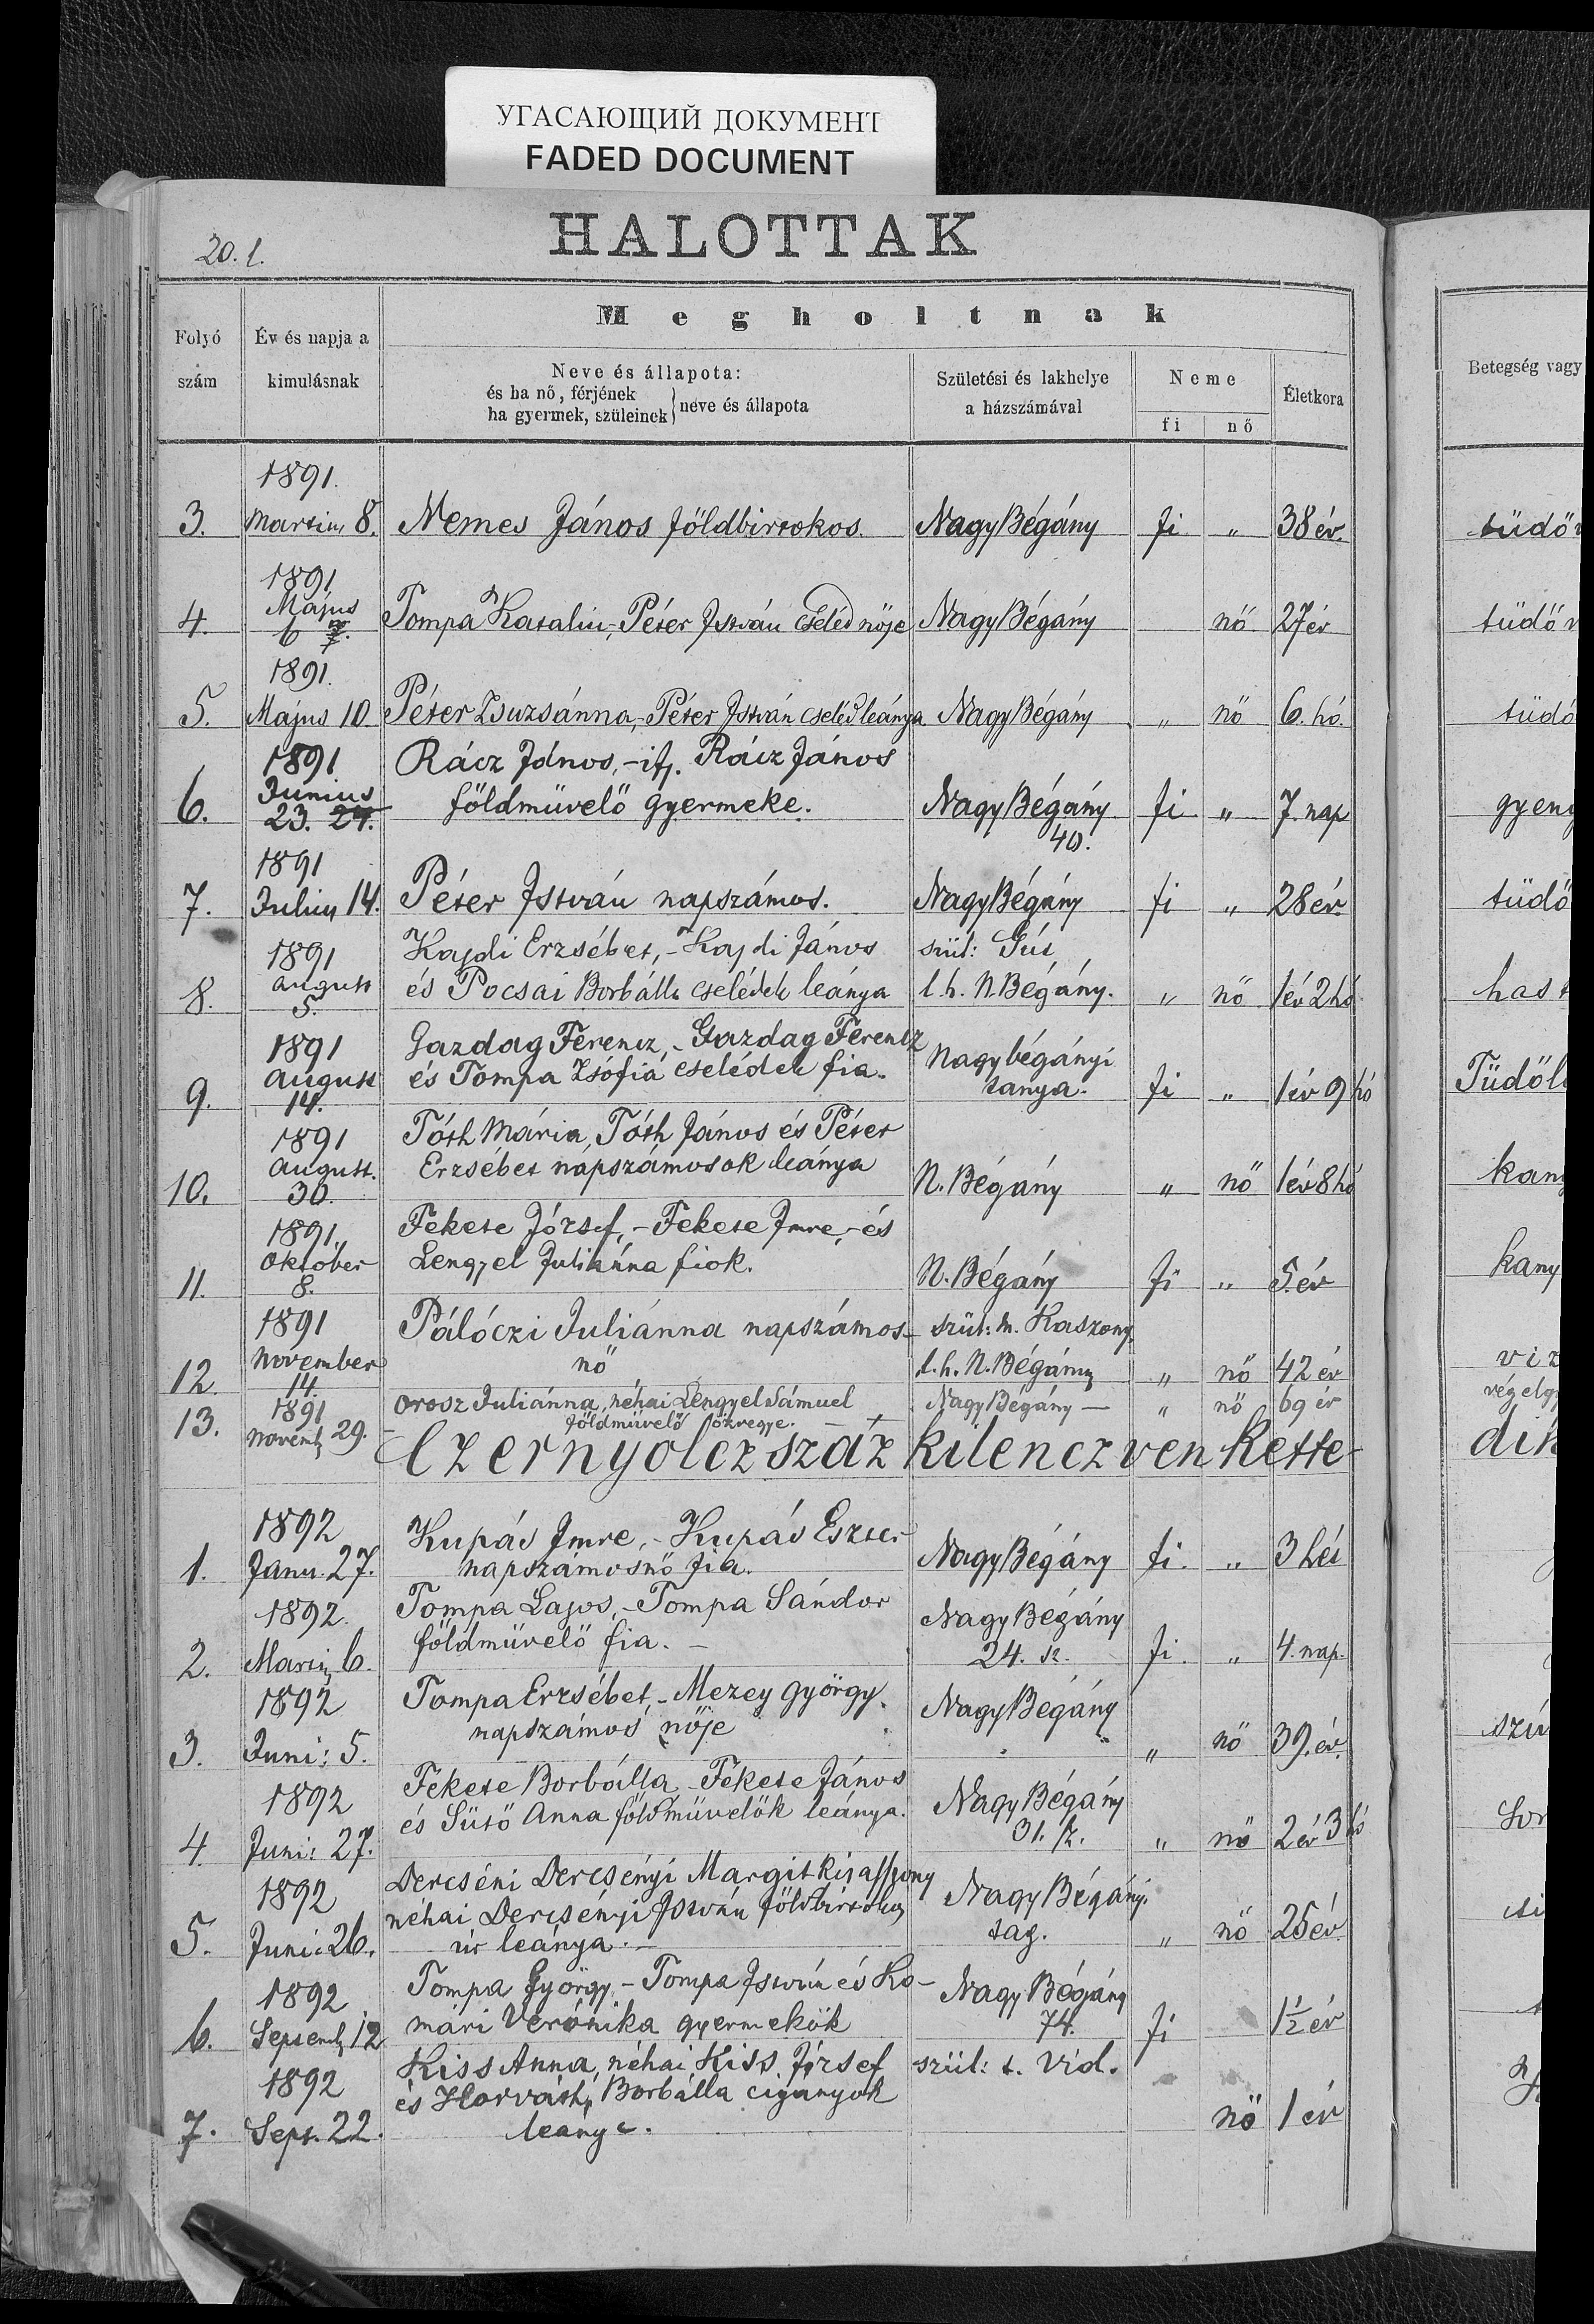 УГАСАЮЩИЙ ДОКУМЕНТ
FADED DOCUMENT
20. l.
HALOTTAK
Folyó szám
Év és napja a kimulásnak
Megholtnak
Neve és állapota:
és ha nő, férjének
ha gyermek, szüleinek } neve és állapota
Születési és lakhelye a házszámával
Neme
fi nő
Életkora
Betegség vagy
1891.
3. Martius 8. Nemes János földbirtokos. Nagy Bégány fi „ 38 év. tüdőv
1891
Május
4. 6 7. Tompa Katalin,- Péter István cseléd nője Nagy Bégány nő 27 év tüdőv
1891.
5. Május 10. Péter Zsuzsánna,- Péter István cseléd leánya Nagy Bégány „ nő 6. hó. tüdő
1891 Rácz János,- ifj. Rácz János
Junius
6. 23. 24. földmüvelő gyermeke. Nagy Bégány 40. fi „ 7. nap gyeng
1891
7. Julius 14. Péter István napszámos. Nagy Bégány fi „ 28 év. tüdő
1891 Kajdi Erzsébet,- Kajdi János szül: Gút
8. August 5. és Pocsai Borbálla cselédek leánya l.h. N. Bégány. „ nő 1 év 2 hó hast
1891 Gazdag Ferencz,- Gazdag Ferencz Nagybégányi
9. August 14. és Tompa Zsófia cselédek fia. tanya. fi „ 1 év 9 hó Tüdől
1891 Tóth Mária, Tóth János és Péter
10. August. 30. Erzsébet napszámosok leánya N. Bégány „ nő 1 év 8 hó kany
1891. Fekete József,- Fekete Imre,- és
11. Október 8. Lengyel Juliánna fiok. N. Bégány fi „ 5. év kany
1891 Pálóczi Juliánna napszámos- szül: m. Kaszony.
12. November 14. nő l.h. N. Bégány „ nő 42 év viz
1891 Orosz Juliánna, néhai Lengyel Sámuel Nagy Bégány — „ nő 69 év végelgy
13. Novemb 29. földmüvelő özvegye. —
Ezernyolczszáz kilenczven kette- dik
1892 Kupás Imre,- Kupás Eszter
1. Janu. 27. napszámosnő fia. Nagy Bégány fi. „ 3 hét
1892. Tompa Lajos,- Tompa Sándor Nagy Bégány
2. Marti 6. földmüvelő fia. — 24. sz. fi. „ 4. nap.
1892 Tompa Erzsébet,- Mezey György. Nagy Bégány
3. Juni: 5. napszámos nője „ nő 39. év. szív
1892 Fekete Borbálla - Fekete János Nagy Bégány
4. Juni: 27. és Sütő Anna földmüvelők leánya. 31. sz. „ nő 2 év 3 hó sor
1892 Dercséni Dercsényi Margit kisasszony Nagy Bégányi
néhai Dercsényi István földbirtokos
5. Juni: 26. úr leánya. — tag. „ nő 25 év.
1892 Tompa György - Tompa István és Ko- Nagy Bégány
6. Septemb 12 mári Verónika gyermekök 74. fi 1½ év
1892 Kiss Anna, néhai Kiss József szül: t. Vid.
és Horváth Borbálla czigányok
7. Sept. 22. leánya. nő 1 év